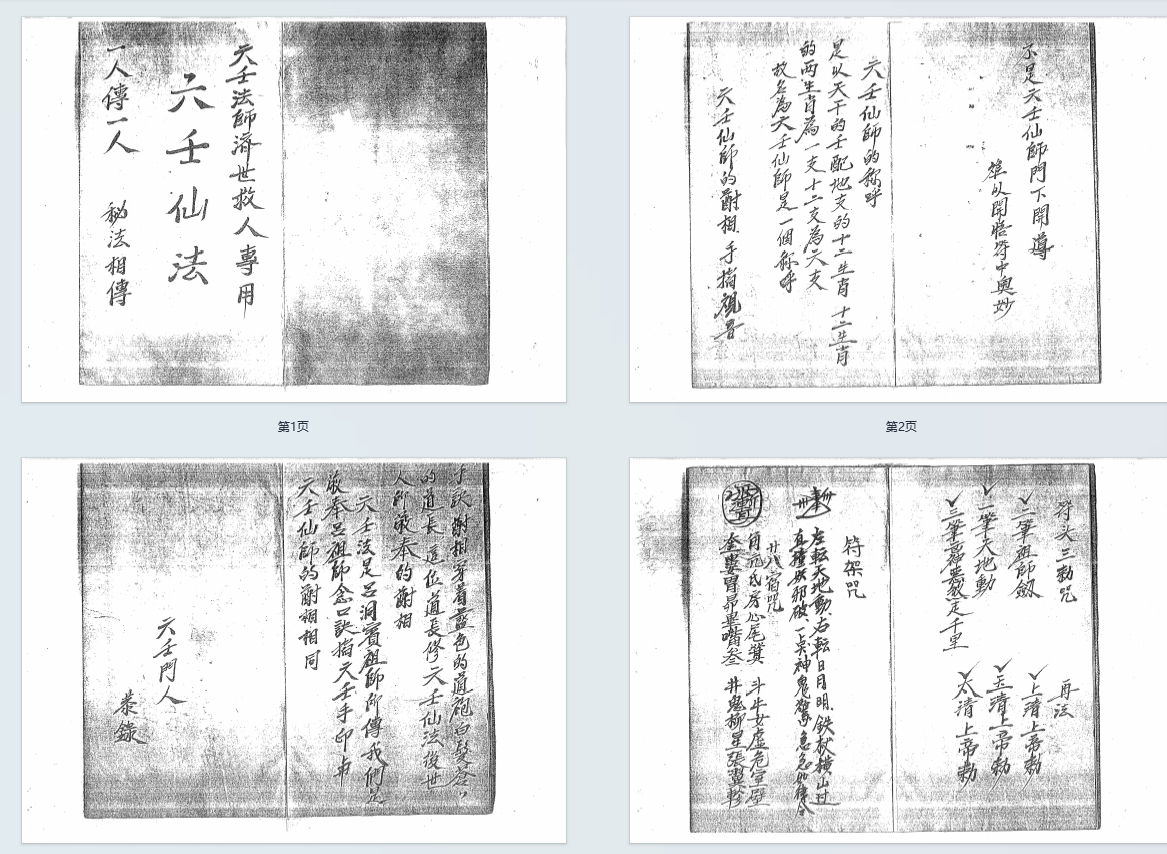 六壬法師濟世救人專用
六壬仙法
一人傳一人 秘法相傳
第1页
不足六壬仙師門下開導
以開悟符中奥妙
六壬仙師的稱呼
是以天干的壬配地支的十二生肖 十二生肖
的两生肖為一支十二支為六支
故名為六壬仙師是一個稱呼
六壬仙師的 相 手指
第2页
手訣 相穿着蓝色的道袍白髮
的道長這位道長修六壬仙法後世
人所敬奉的 相
六壬法是吕洞賓祖師所傳我們是
敬奉吕祖師念口訣指六壬手印 
六壬仙師的 相相同
六壬門人
恭錄
符头三勅咒
二筆祖師劍
一筆天地動
三筆 走千里
再法
上清上帝勅
玉清上帝勅
太清上帝勅
符架咒
左転天地動右転日月明 鉄 横山过
妖邪破 神鬼驚急急如律令
廿八宿咒
角亢氐房心尾箕 斗牛女虚危室壁
奎婁胃昴畢嘴参 井鬼柳星張翼軫